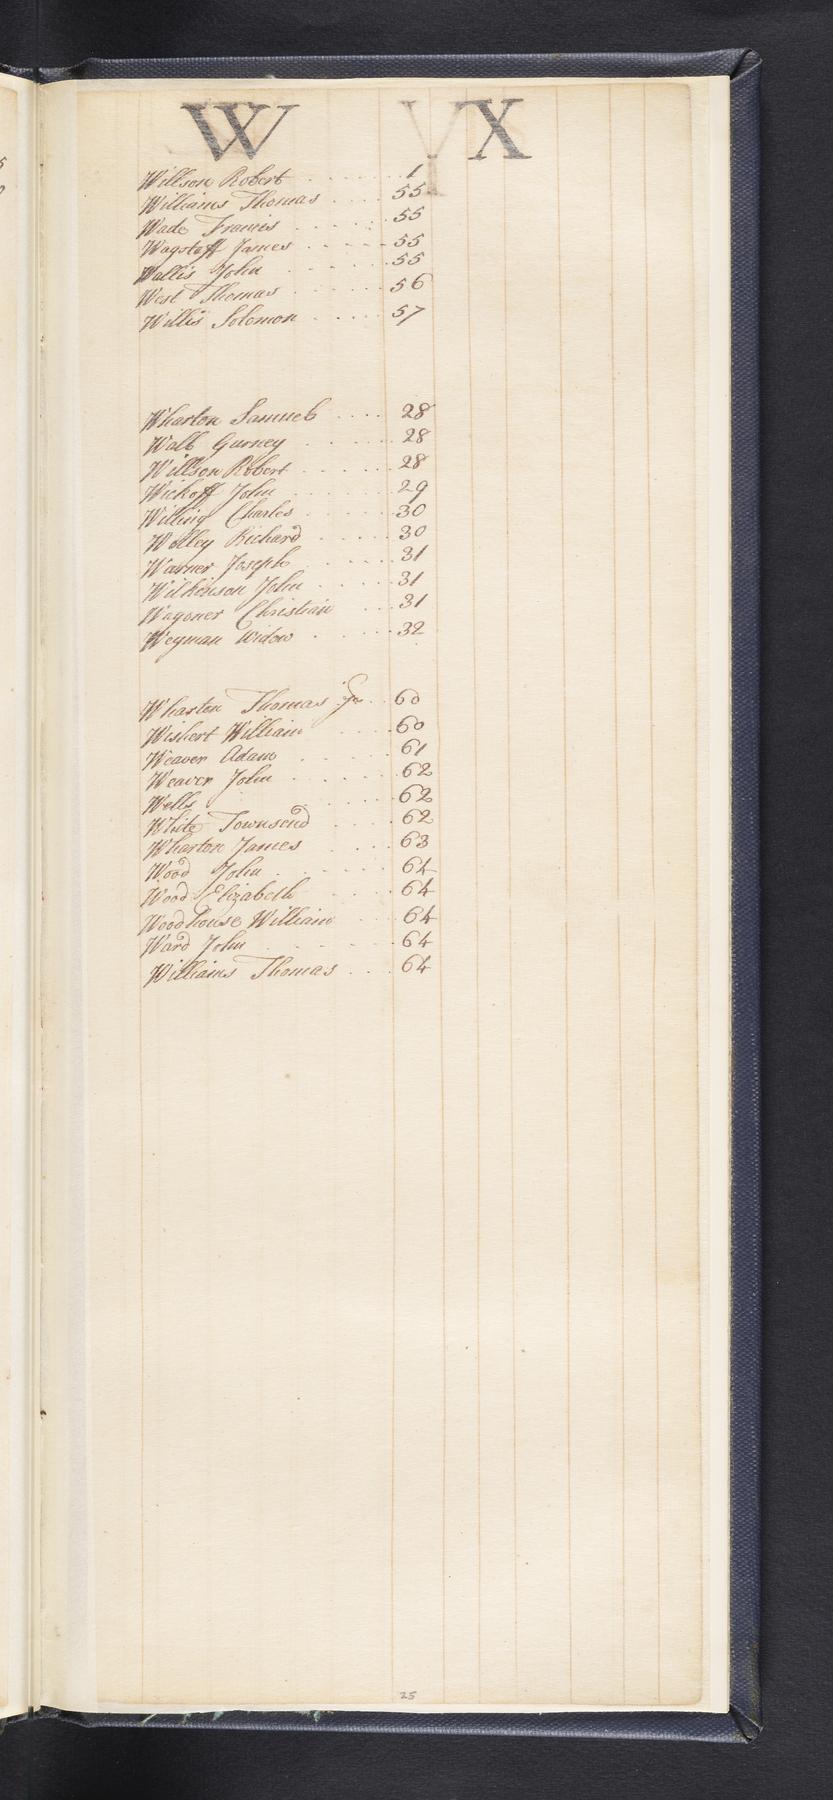 W X
Willson Robert 1
Williams Thomas 55
Wade Francis 55
Wagstaff James 55
Wallis John 55
West Thomas 56
Willis Solomon 57
Wharton Samuel 28
Wall Gurney 28
Willson Robert 28
Wickoff John 29
Willing Charles 30
Wolley Richard 30
Warner Joseph 31
Wilkinson John 31
Wagoner Christian 31
Weyman Widow 32
Wharton Thomas Jr 60
Wishert William 60
Weaver Adam 61
Weaver John 62
Wells 62
White Townsend 62
Wharton James 63
Wood John 64
Wood Elizabeth 64
Woodhouse William 64
Ward John 64
Williams Thomas 64
25